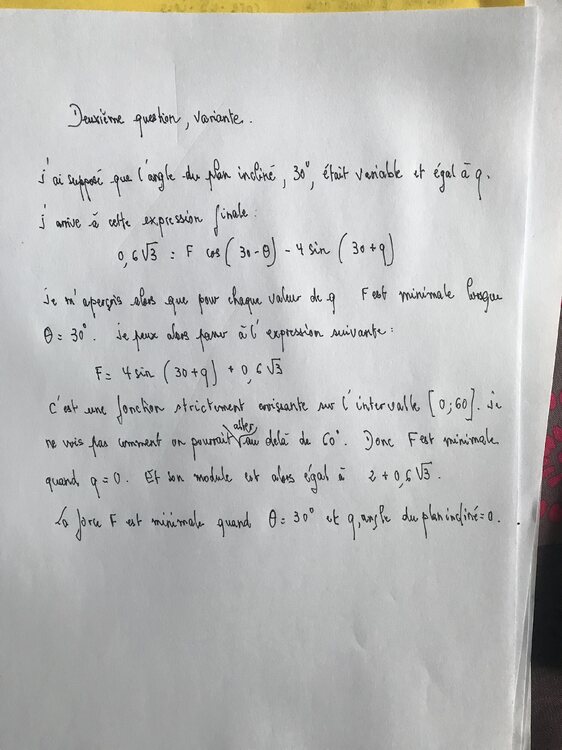 Deuxième question, variante.
J'ai supposé que l'angle du plan incliné, 30°, était variable et égal à q.
J'arrive à cette expression finale :
0,6√3 = F cos (30-θ) - 4 sin (30+q)
Je m'aperçois alors que pour chaque valeur de q F est minimale lorsque
θ = 30°. Je peux alors passer à l'expression suivante :
F = 4 sin (30+q) + 0,6√3
C'est une fonction strictement croissante sur l'intervalle [0;60]. Je
ne vois pas comment on pourrait aller au delà de 60°. Donc F est minimale
quand q = 0. Et son module est alors égal à 2 + 0,6√3.
La force F est minimale quand θ = 30° et q, angle du plan incliné = 0.